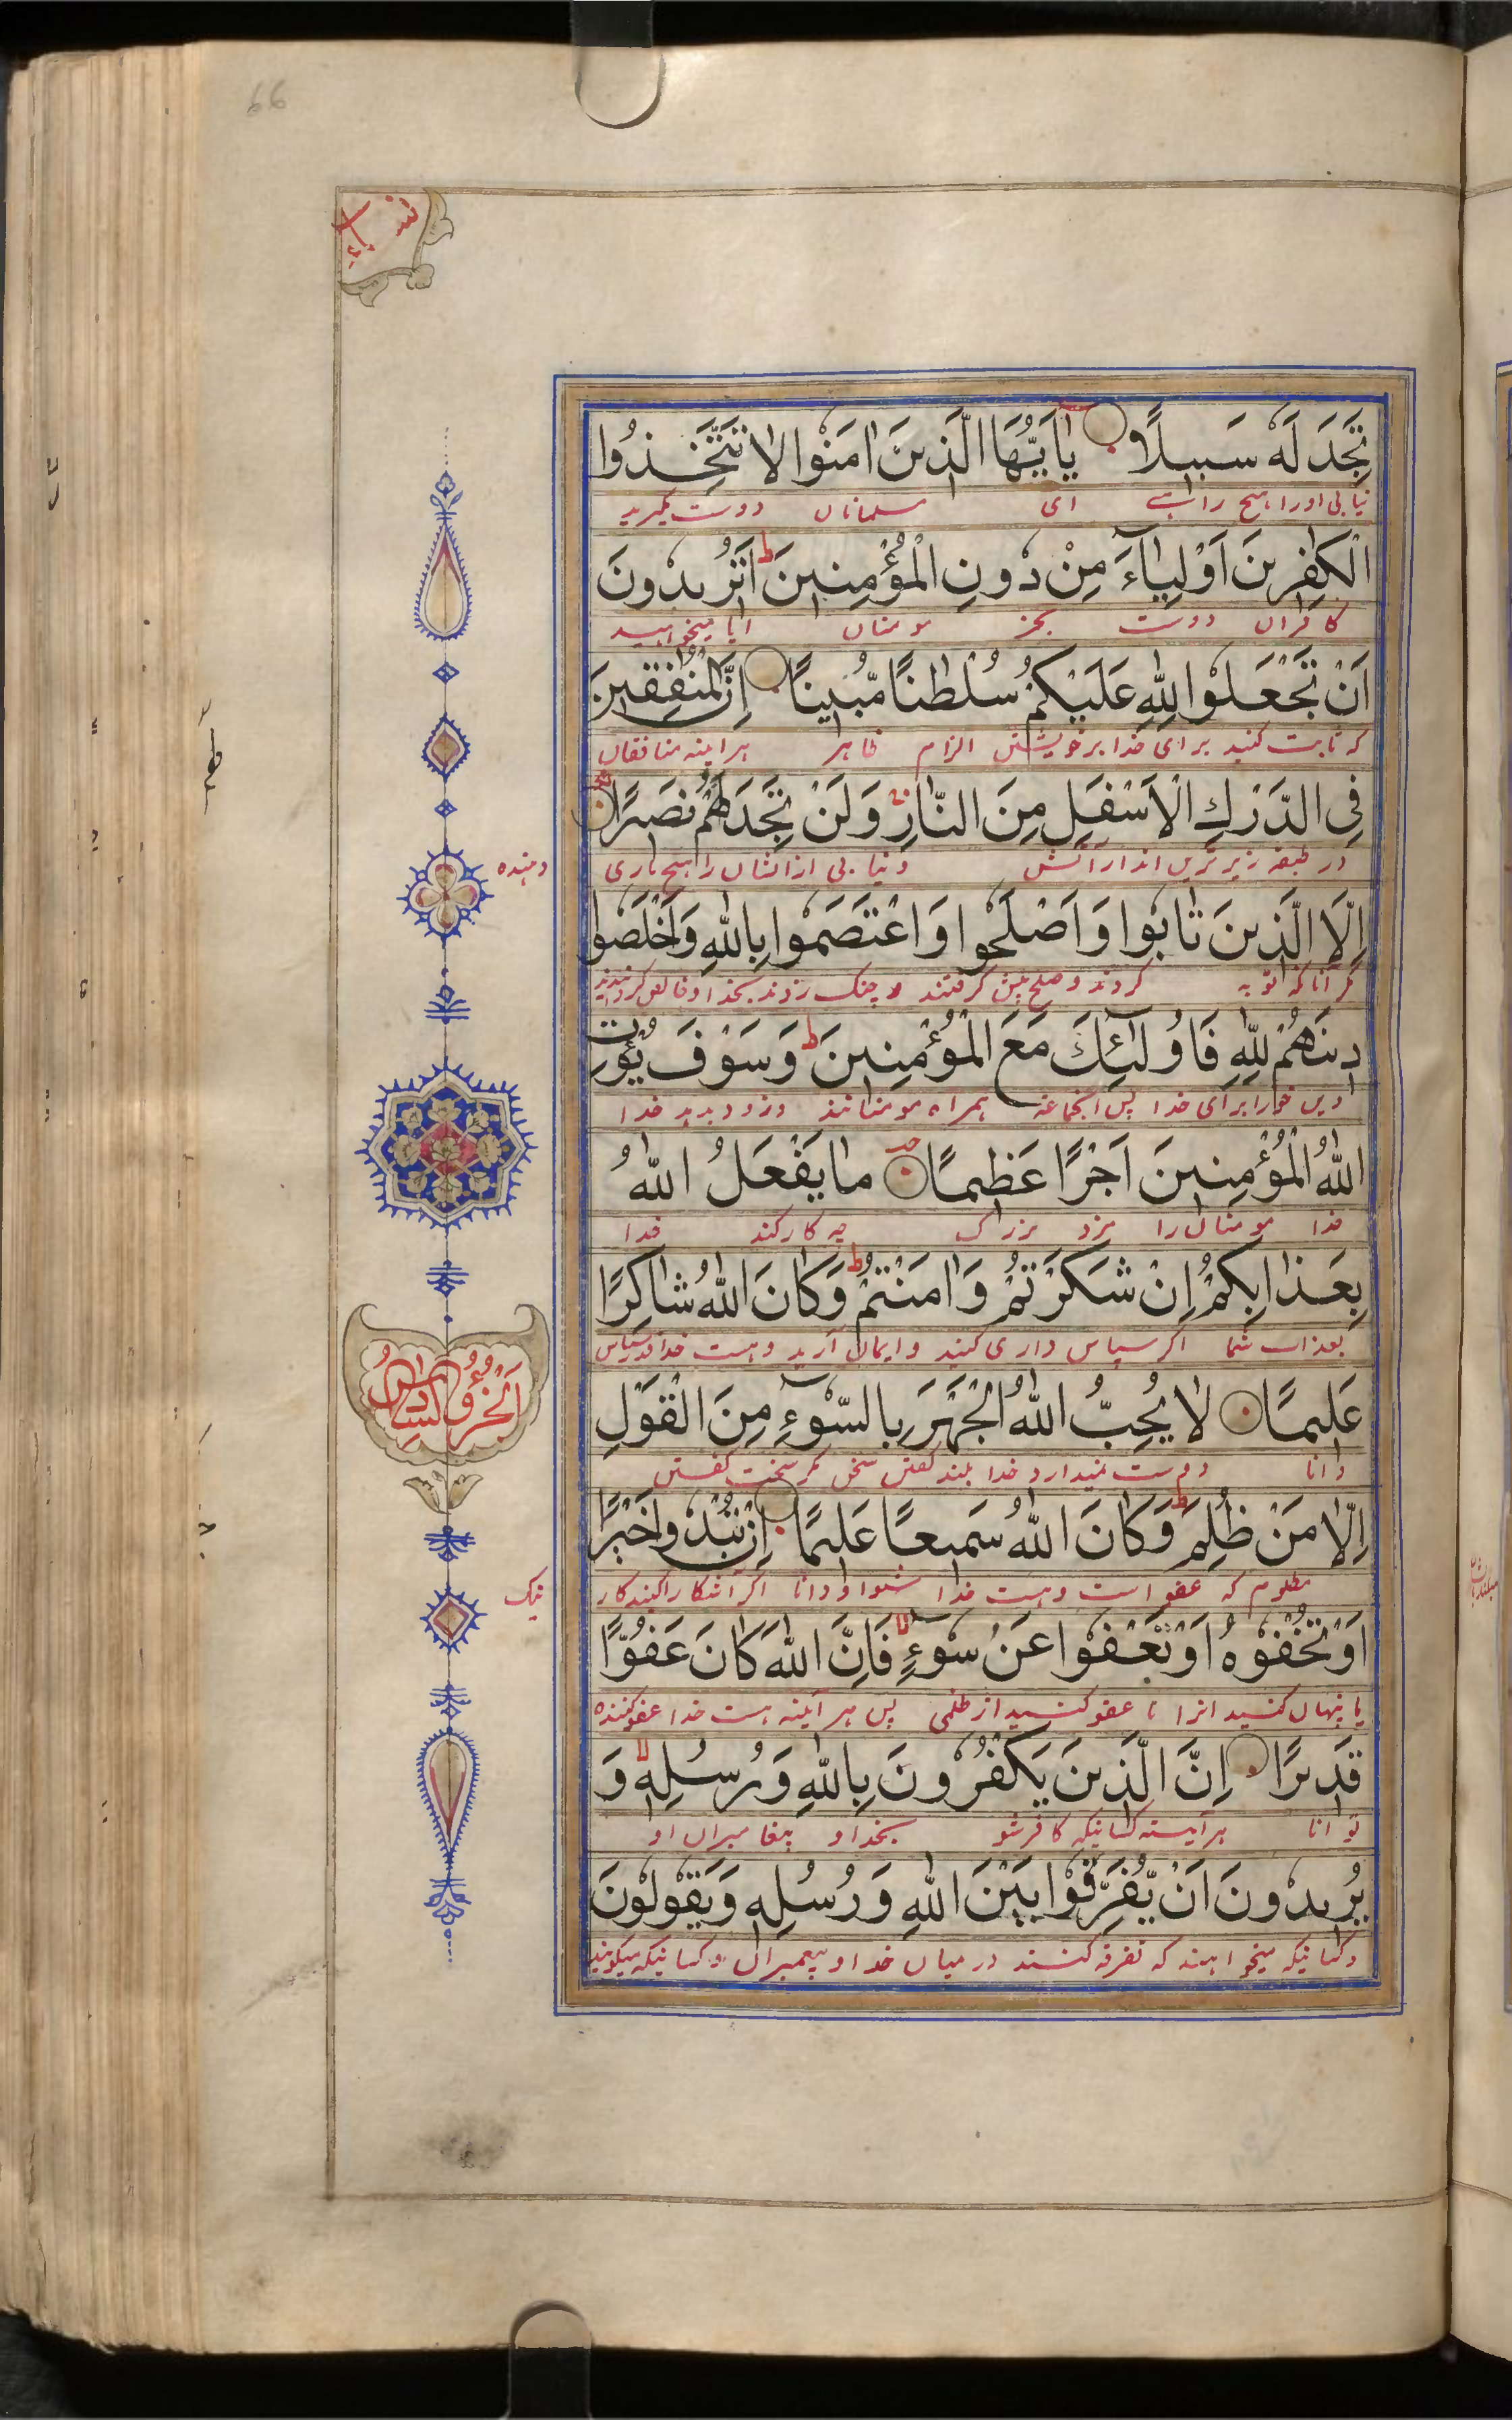 نساء
تَجِدَ لَهُ سَبِيلًا يٰاَيُّهَا الَّذِينَ اٰمَنُوا لَا تَتَّخِذُوا
نیابی اورا هیچ راهی ای مسلمانان دوست مگیرید
الْكٰفِرِينَ اَوْلِيَآءَ مِنْ دُونِ الْمُؤْمِنِينَ ط اَتُرِيدُونَ
کافران دوست بجز مومنان ایا میخواهید
اَنْ تَجْعَلُوا لِلّٰهِ عَلَيْكُمْ سُلْطٰنًا مُّبِينًا اِنَّ الْمُنٰفِقِينَ
که ثابت کنید برای خدا بر خویشتن الزام ظاهر هراینه منافقان
فِي الدَّرْكِ الْاَسْفَلِ مِنَ النَّارِ وَلَنْ تَجِدَ لَهُمْ نَصِيرًا
در طبقه زیرترین اند از آتش و نیابی از انشان را هیچ یاری
دهنده
اِلَّا الَّذِينَ تَابُوا وَاَصْلَحُوا وَاعْتَصَمُوا بِاللّٰهِ وَاَخْلَصُوا
مگر آنانکه توبه کردند و صلح پیش گرفتند و چنگ زدند بخدا و خالص کردند
دِينَهُمْ لِلّٰهِ فَاُولٰٓئِكَ مَعَ الْمُؤْمِنِينَ ط وَسَوْفَ يُؤْتِ
دین خود را برای خدا پس آنجماعه همراه مومنانند و زود بدهد خدا
اللّٰهُ الْمُؤْمِنِينَ اَجْرًا عَظِيمًا مَا يَفْعَلُ اللّٰهُ
خدا مومنان را مزد بزرگ چه کار کند خدا
بِعَذَابِكُمْ اِنْ شَكَرْتُمْ وَاٰمَنْتُمْ ط وَكَانَ اللّٰهُ شَاكِرًا
بعذاب شما اگر سپاس داری کنید و ایمان آرید و هست خدا قدر سپاس
اَلْجُزْؤُ السَّادِسُ
عَلِيمًا لَا يُحِبُّ اللّٰهُ الْجَهْرَ بِالسُّوٓءِ مِنَ الْقَوْلِ
دانا دوست نمیدارد خدا بلند گفتن سخن مگر سخت گفتن
اِلَّا مَنْ ظُلِمَ ط وَكَانَ اللّٰهُ سَمِيعًا عَلِيمًا اِنْ تُبْدُوا خَيْرًا
مظلوم که عفو است و هست خدا شنوا و دانا اگر آشکارا کنید کار
نیک
اَوْ تُخْفُوهُ اَوْ تَعْفُوا عَنْ سُوٓءٍ فَاِنَّ اللّٰهَ كَانَ عَفُوًّا
یا پنهان کنید انرا یا عفو کنید از ظلمی پس هر آینه هست خدا عفو کننده
قَدِيرًا اِنَّ الَّذِينَ يَكْفُرُونَ بِاللّٰهِ وَرُسُلِهِ وَ
توانا هر آینه کسانیکه کافر شو بخدا و پیغامبران او
يُرِيدُونَ اَنْ يُّفَرِّقُوا بَيْنَ اللّٰهِ وَرُسُلِهِ وَيَقُولُونَ
و کسانیکه میخواهند که تفرقه کنند درمیان خدا و پیغمبران و کسانیکه میگویند